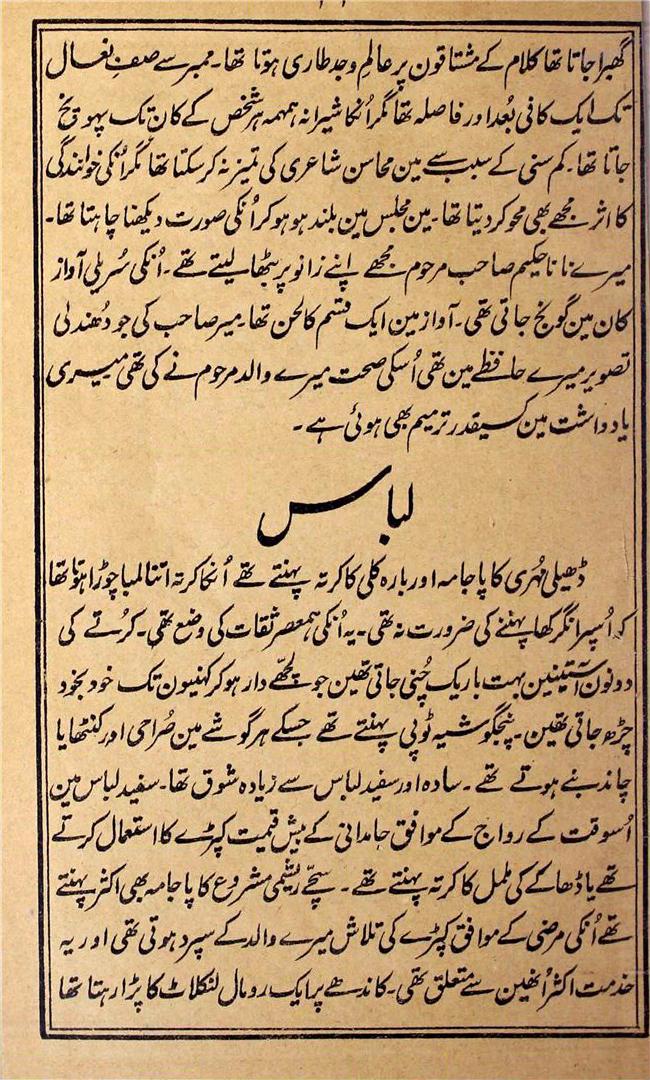 گھبرا جاتا تھا کلام کے مشتاقون پر عالمِ وجد طاری ہوتا تھا۔ ممبر سے صفِ نعال
تک ایک کافی بُعد اور فاصلہ تھا مگر اُنکا شیرانہ ہمہمہ ہر شخص کے کان تک پہونچ
جاتا تھا۔ کم سنی کے سبب سے مین محاسن شاعری کی تمیز نہ کر سکتا تھا مگر اُنکی خوانندگی
کا اثر مجھے بھی محو کر دیتا تھا۔ مین مجلس مین بلند ہو ہو کر اُنکی صورت دیکھنا چاہتا تھا۔
میرے نانا حکیم صاحب مرحوم مجھے اپنے زانو پر بٹھا لیتے تھے۔ اُنکی سُریلی آواز
کان مین گونج جاتی تھی۔ آواز مین ایک قسم کا لحن تھا۔ میر صاحب کی جو دُھندلی
تصویر میرے حافظے مین تھی اُسکی صحت میرے والد مرحوم نے کی تھی میری
یادداشت مین کسیقدر ترمیم بھی ہوئی ہے۔
لباس
ڈھیلی مُہری کا پاجامہ اور بارہ کلی کا کرتہ پہنتے تھے اُنکا کرتہ اتنا لمبا چوڑا ہوتا تھا
کہ اُسپر انگرکھا پہننے کی ضرورت نہ تھی۔ یہ اُنکی ہمعصر ثقات کی وضع تھی۔ کرُتے کی
دونون آستینین بہت باریک چُنی جاتی تھین جو لچھّے دار ہو کر کہنیون تک خود بخود
چڑھ جاتی تھین۔ پنجگوشیہ ٹوپی پہنتے تھے جسکے ہر گوشے مین صُراحی اور کنٹھا یا
چاند بنے ہوتے تھے۔ سادہ اور سفید لباس سے زیادہ شوق تھا۔ سفید لباس مین
اُسوقت کے رواج کے موافق جامدانی کے بیش قیمت کپڑے کا استعمال کرتے
تھے یا ڈھاکے کی ململ کا کرتہ پہنتے تھے۔ سچّے ریشمی مشروع کا پاجامہ بھی اکثر پہنتے
تھے اُنکی مرضی کے موافق کپڑے کی تلاش میرے والد کے سپرد ہوتی تھی اور یہ
خدمت اکثر اُنھین سے متعلق تھی۔ کاندھے پر ایک رومال لنکلاٹ کا پڑا رہتا تھا